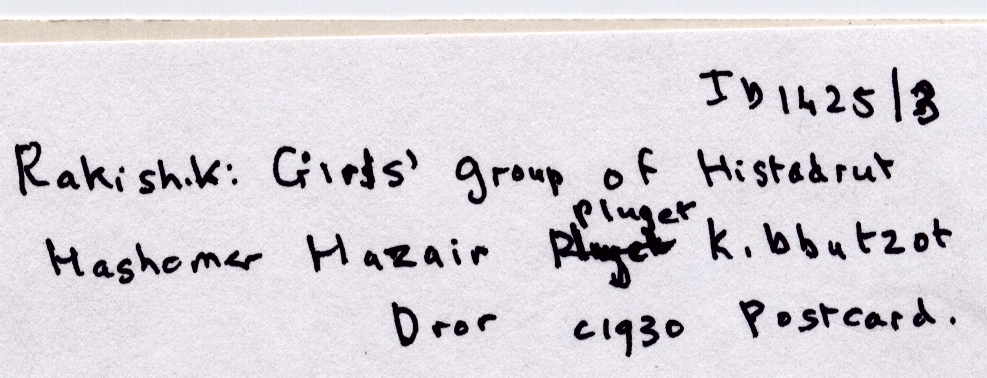 ID1425/3
Rakishik: Girls' group of Histadrut
Pluget
Hashomer Hazair Kibbutzot
Dror c1930 Postcard.